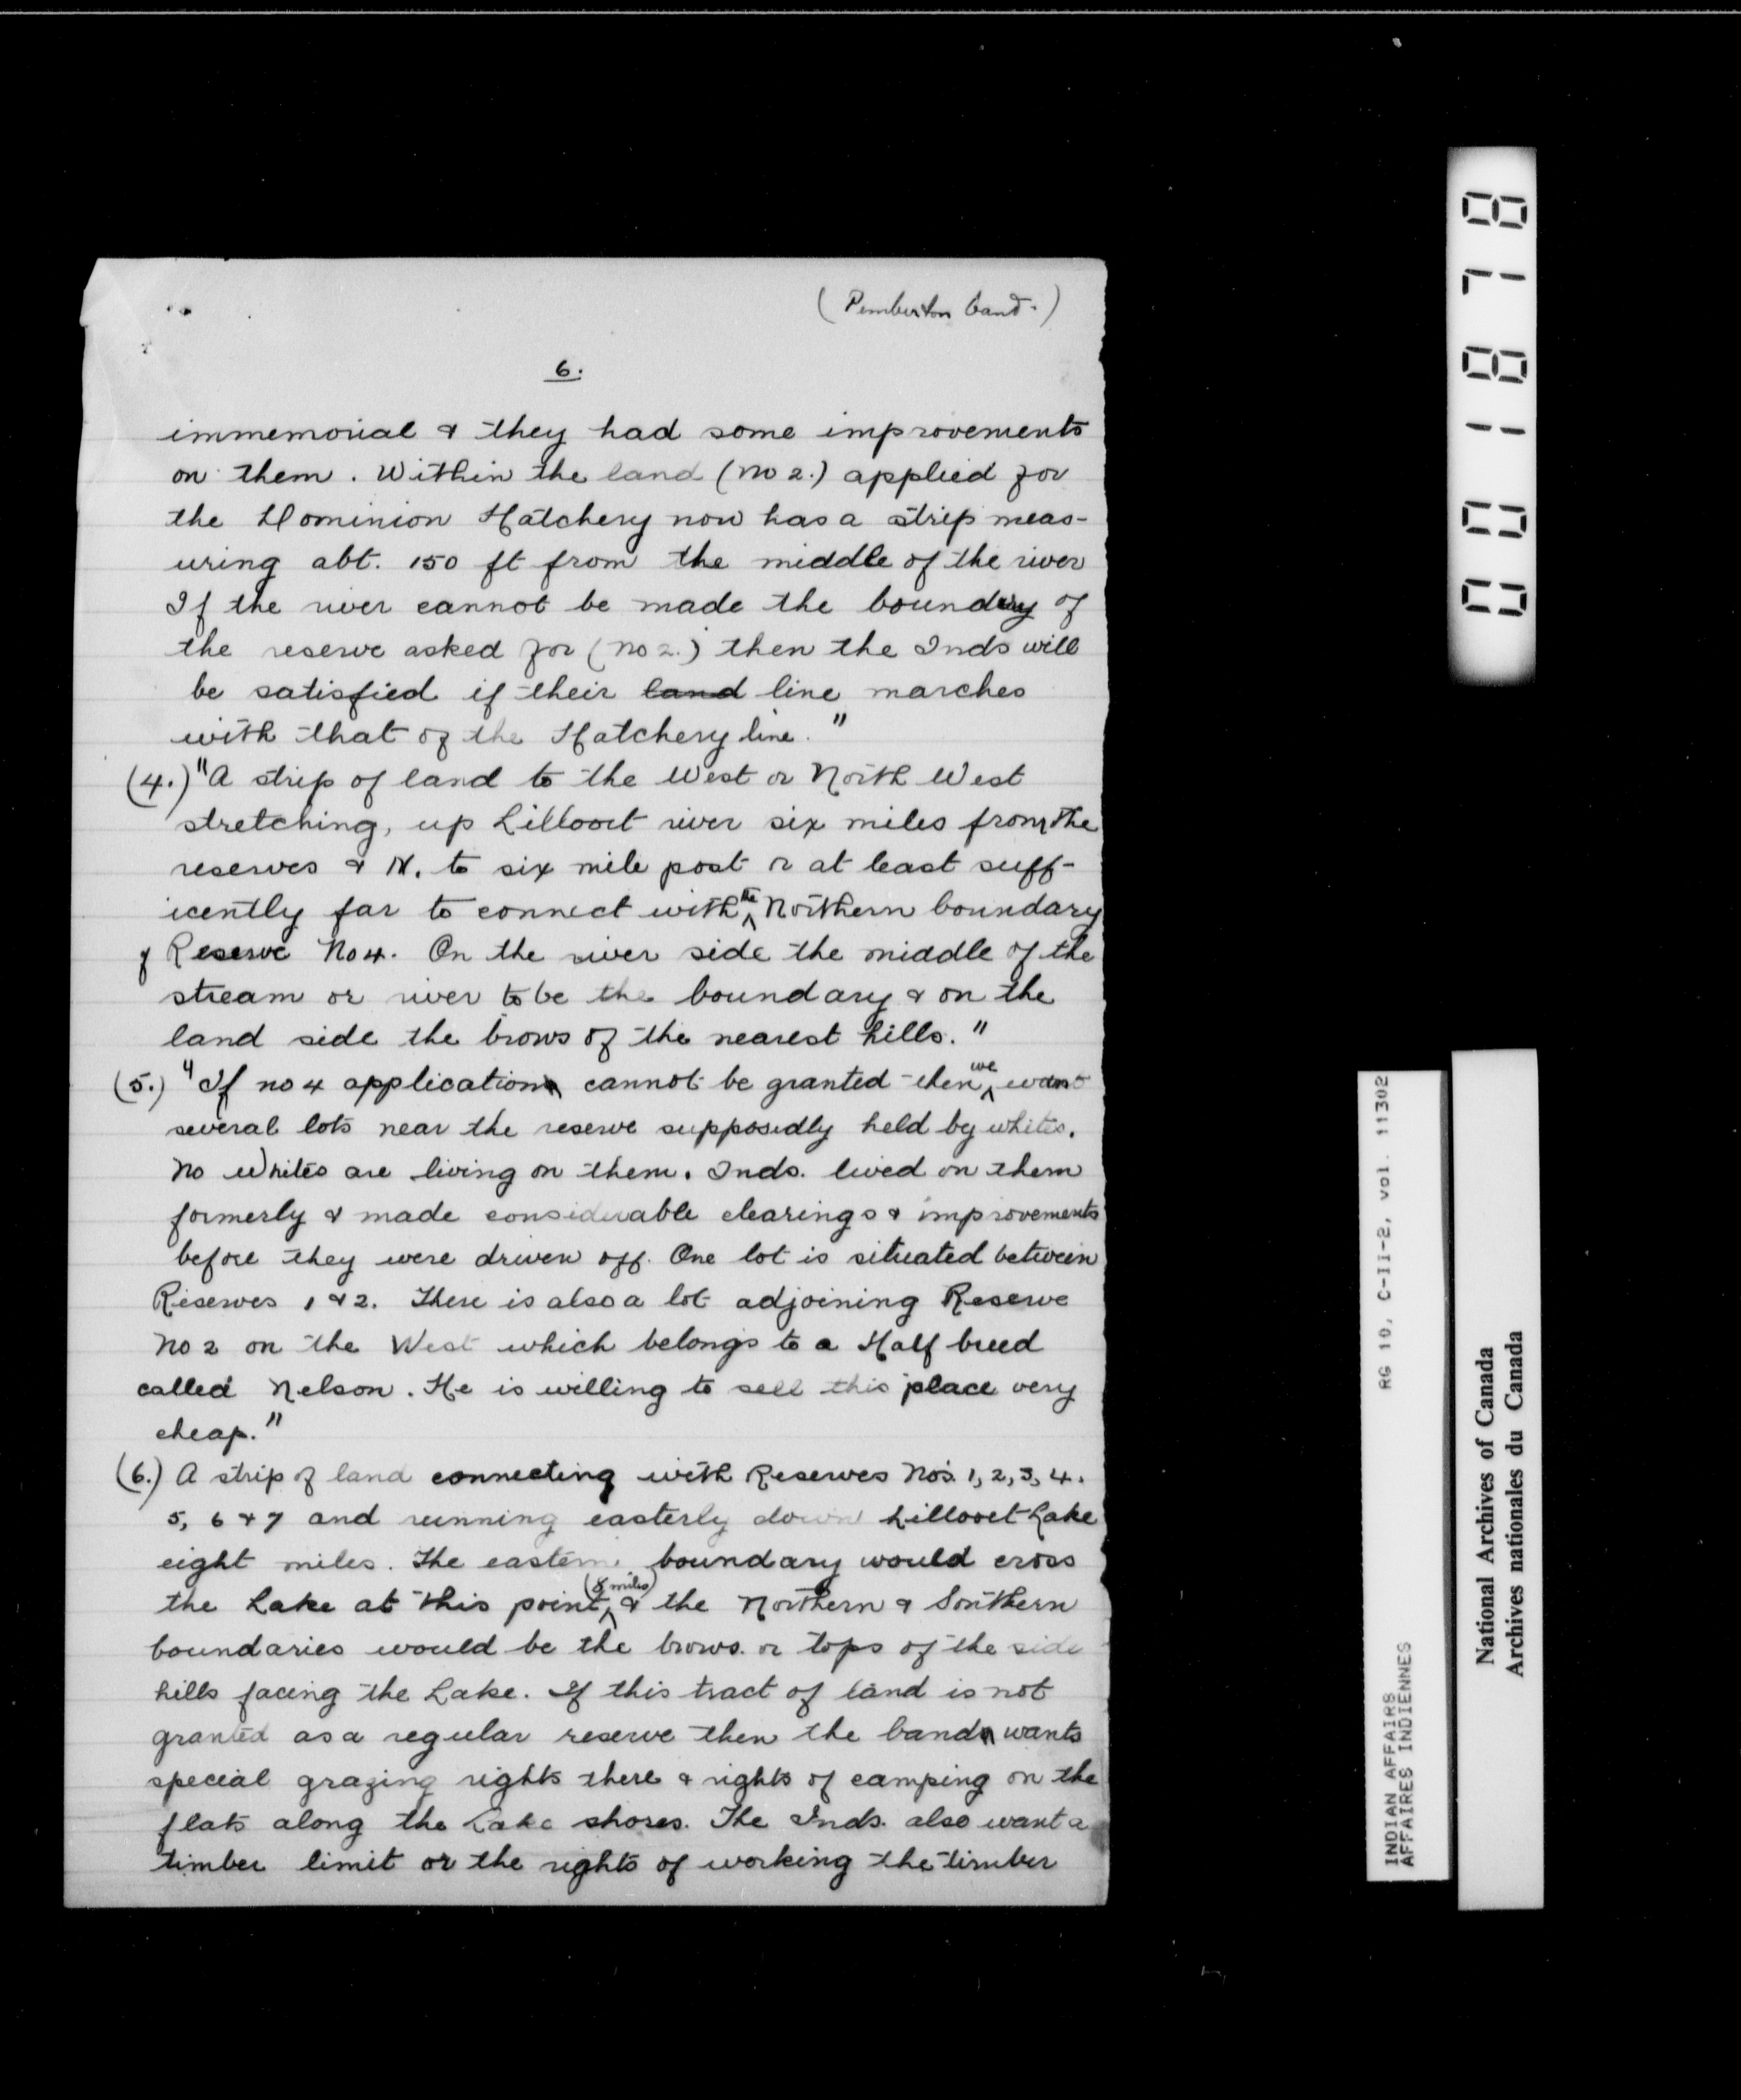 (Pemberton band.)
6.
immemorial & they had some improvements
on them. Within the land (no 2.) applied for
the Dominion Hatchery now has a strip meas-
uring abt. 150 ft from the middle of the river
If the river cannot be made the boundary of
the reserve asked for (no 2.) then the Inds will
be satisfied if their land line marches
with that of the Hatchery line."
(4.) "A strip of land to the West or North West
stretching, up Lillooet river six miles from the
reserves & N. to six mile post or at least suff-
icently far to connect with the Northern boundary
of Reserve No 4. On the river side the middle of the
stream or river to be the boundary & on the
land side the brows of the nearest hills."
(5.) "If no 4 application cannot be granted then we want
several lots near the reserve supposedly held by whites.
No Whites are living on them. Inds. lived on them
formerly & made considerable clearings & improvements
before they were driven off. One lot is situated between
Reserves 1 & 2. There is also a lot adjoining Reserve
No 2 on the West which belongs to a Half breed
called Nelson. He is willing to sell this place very
cheap."
(6.) A strip of land connecting with Reserves Nos. 1, 2, 3, 4.
5, 6 & 7 and running easterly down Lillooet Lake
eight miles. The eastern boundary would cross
the Lake at this point (8 miles) & the Northern & Southern
boundaries would be the brows. or tops of the side
hills facing the Lake. If this tract of land is not
granted as a regular reserve then the band wants
special grazing rights there & rights of camping on the
flats along the Lake shores. The Inds. also want a
timber limit or the rights of working the timber
001878
RG 10, C-II-2, vol. 11302
INDIAN AFFAIRS
AFFAIRES INDIENNES
National Archives of Canada
Archives nationales du Canada